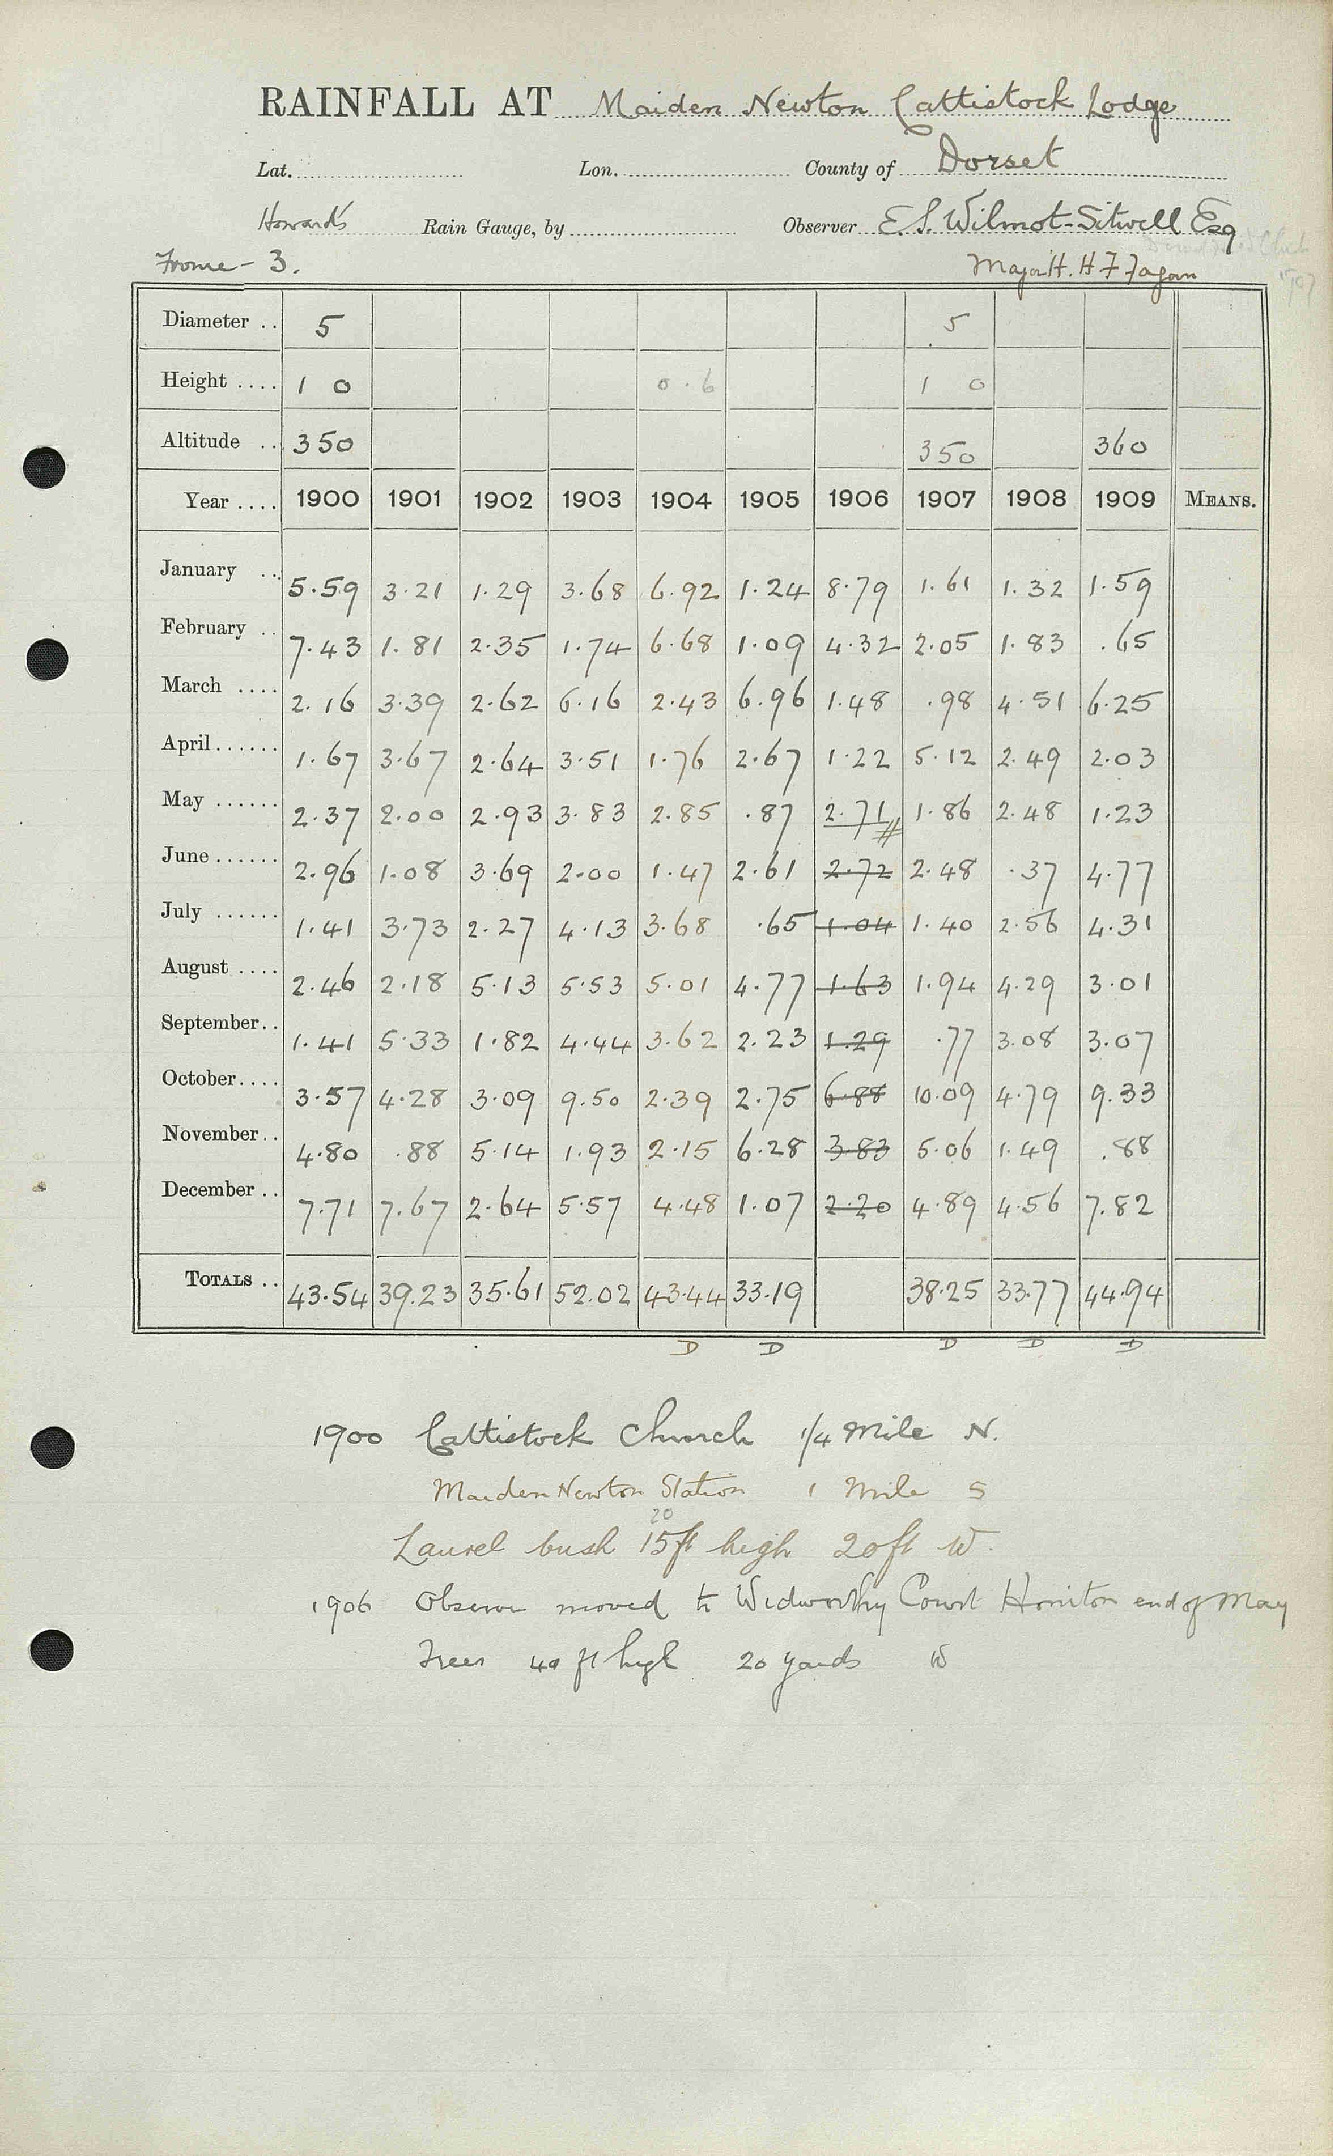 RAINFALL AT Maiden Newton Cattistock Lodge
Lat. Lon. County of Dorset
Howard's Rain Gauge, by Observer E. S. Wilmot-Sitwell Esq
Frome - 3. Major H. H F Fagan
1907
Diameter .. 5 5
Height .... 1 0 0.6 1 0
Altitude .. 350 350 360
Year .... 1900 1901 1902 1903 1904 1905 1906 1907 1908 1909 MEANS.
January .. 5.59 3.21 1.29 3.68 6.92 1.24 8.79 1.61 1.32 1.59
February .. 7.43 1.81 2.35 1.74 6.68 1.09 4.32 2.05 1.83 .65
March .... 2.16 3.39 2.62 6.16 2.43 6.96 1.48 .98 4.51 6.25
April ...... 1.67 3.67 2.64 3.51 1.76 2.67 1.22 5.12 2.49 2.03
May ...... 2.37 2.00 2.93 3.83 2.85 .87 2.71 1.86 2.48 1.23
June ...... 2.96 1.08 3.69 2.00 1.47 2.61 2.72 2.48 .37 4.77
July ...... 1.41 3.73 2.27 4.13 3.68 .65 1.04 1.40 2.56 4.31
August .... 2.46 2.18 5.13 5.53 5.01 4.77 1.63 1.94 4.29 3.01
September.. 1.41 5.33 1.82 4.44 3.62 2.23 1.29 .77 3.08 3.07
October.... 3.57 4.28 3.09 9.50 2.39 2.75 6.88 10.09 4.79 9.33
November.. 4.80 .88 5.14 1.93 2.15 6.28 3.83 5.06 1.49 .88
December .. 7.71 7.67 2.64 5.57 4.48 1.07 2.20 4.89 4.56 7.82
TOTALS .. 43.54 39.23 35.61 52.02 43.44 33.19 38.25 33.77 44.94
D D D D D
1900 Cattistock Church 1/4 Mile N.
Maiden Newton Station 1 Mile S
20
Laurel bush 15ft high 20ft W.
1906 Observer moved to Widworthy Court Honiton end of May
Trees 40 ft high 20 yards W